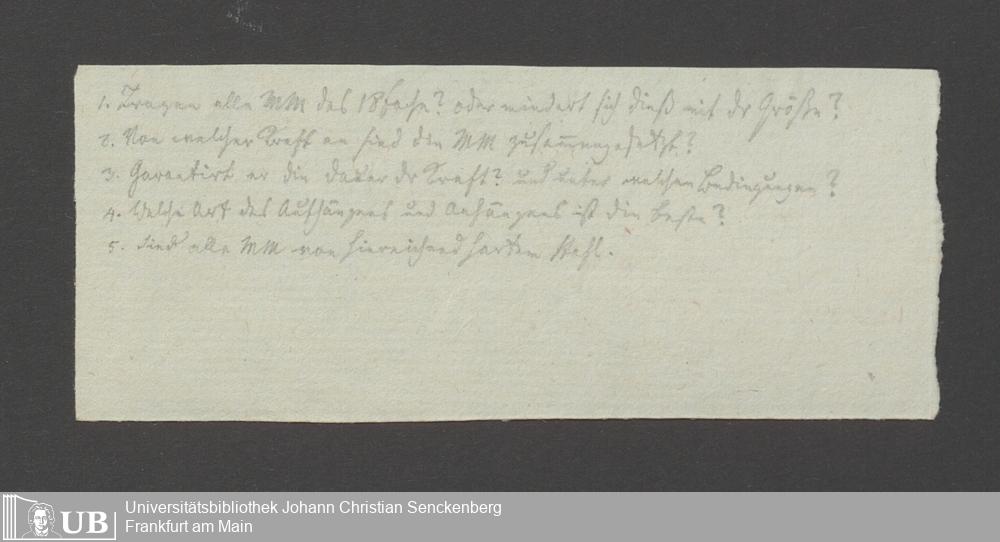 1. Tragen alle MM das 18fache? oder mindert sich dieß mit dr Größe?
2. Von welcher Kraft an sind die MM zusamengesetzt?
3. Garantirt er die Dauer dr Kraft? und unter welchen Bedingungen?
4. Welche Art des Aufhängens und Anhängens ist die beste?
5. Sind alle MM von hinreichend hartem Stahl.
Universitätsbibliothek Johann Christian Senckenberg
UB Frankfurt am Main